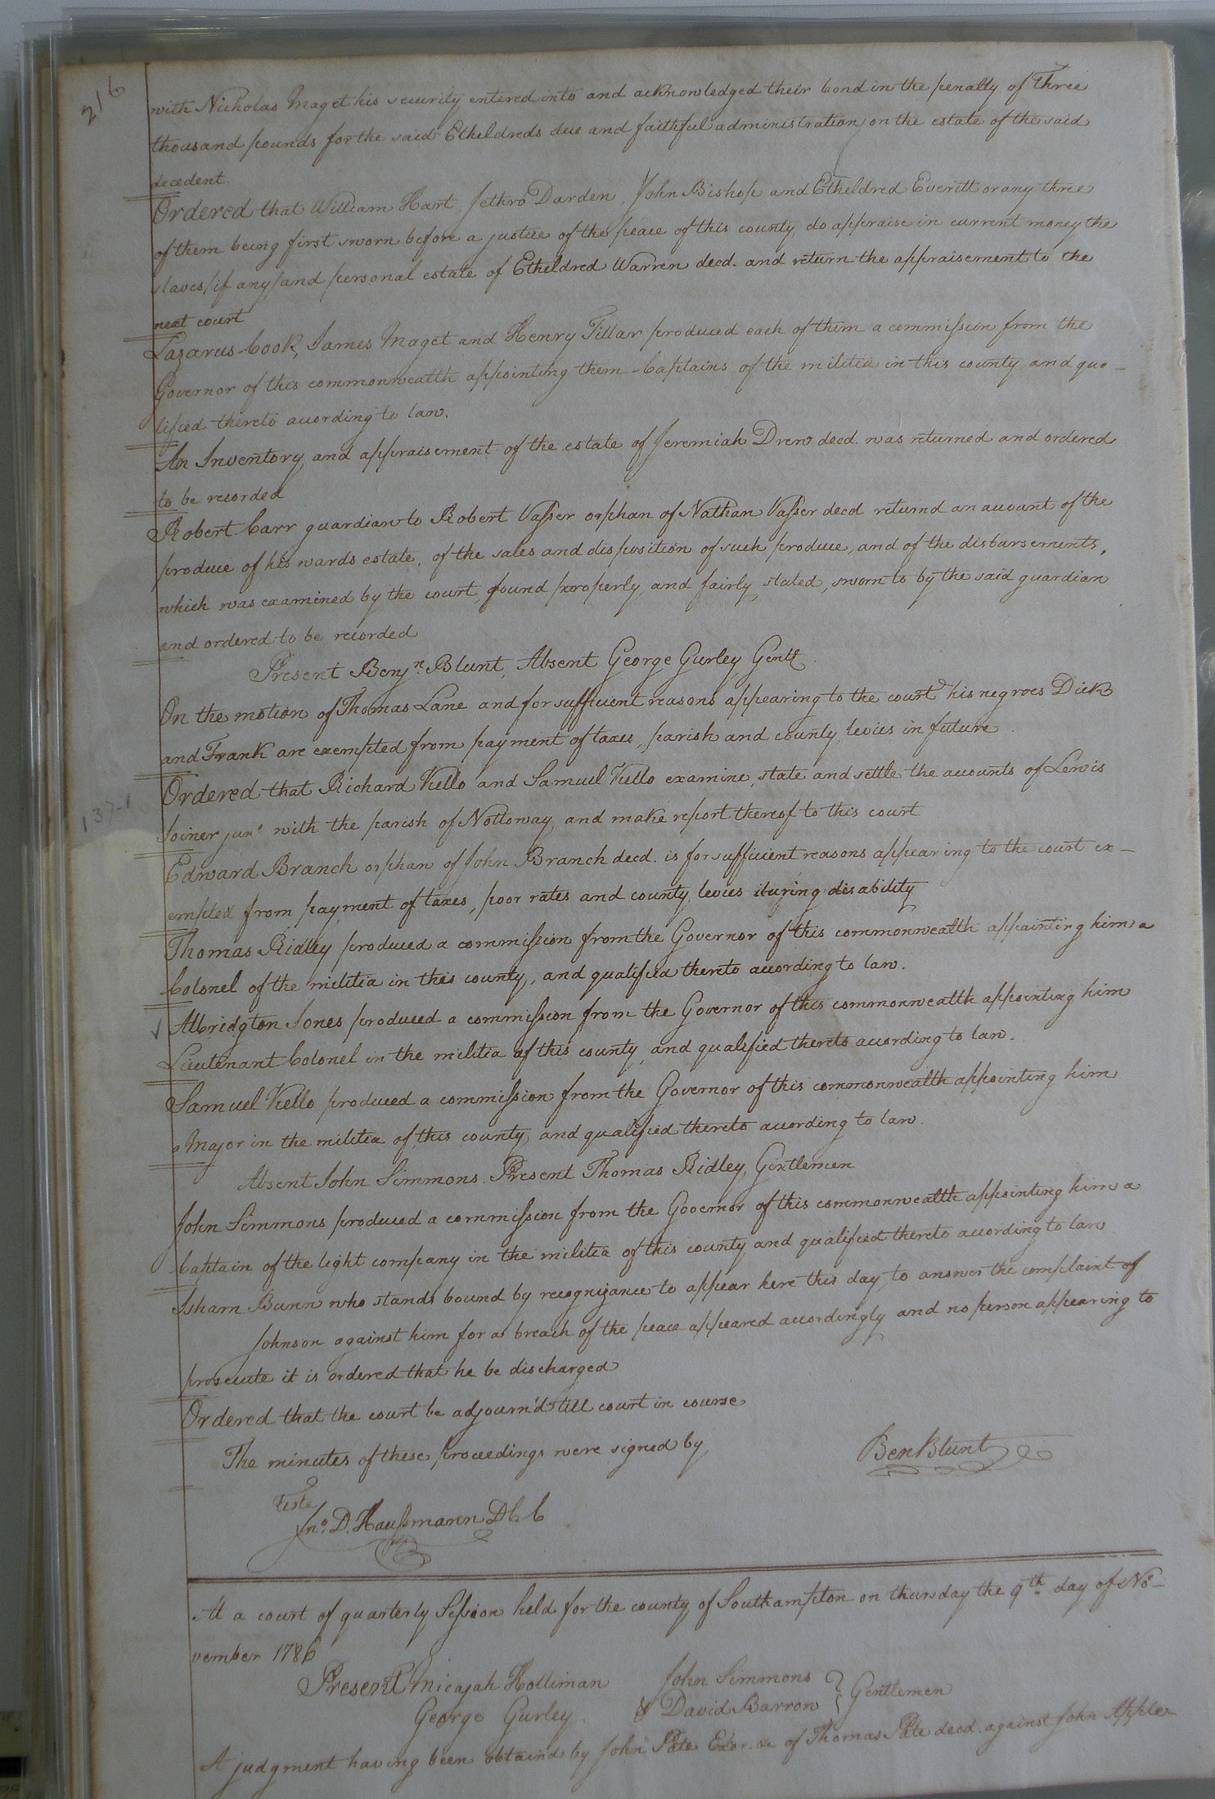 216
with Nicholas Maget his security entered into and acknowledged their bond in the penalty of Three
thousand pounds for the said Etheldreds due and faithful administration on the estate of the said
decedent.
Ordered that William Hart Jethro Darden, John Bishop and Etheldred Everitt or any three
of them being first sworn before a justice of the peace of this county, do appraise in current money the
slaves/if any/and personal estate of Etheldred Warren decd. and return the appraisement to the
next court
Lazarus Cook, James Maget and Henry Tillar produced each of them a commission from the
Governor of this commonwealth appointing them Captains of the militia in this county and qua-
lified thereto acording to law.
An Inventory and appraisement of the estate of Jeremiah Drew decd was returned and ordered
to be recorded
Robert Carr guardian to Robert Vasser orphan of Nathan Vasser decd returnd an acount of the
produce of his wards estate, of the sales and disposition of such produce, and of the disbursements,
which was examined by the court, found properly and fairly stated, sworn to by the said guardian
and ordered to be recorded
Present Benjn. Blunt, Absent George Gurley Gentl.
On the motion of Thomas Lane and for sufficient reasons appearing to the court his negroes Dick
and Frank are exempted from payment of taxes, parish and county levies in future
Ordered that Richard Kello and Samuel Kello examine, state and settle the acounts of Lewis
137-1
Joiner junr. with the parish of Nottoway and make report thereof to this court
Edward Branch orphan of John Branch decd. is for sufficient reasons appearing to the court ex-
empted from payment of taxes, poor rates and county levies during disability
Thomas Ridley produced a commission from the Governor of this commonwealth appointing him a
Colonel of the militia in this county, and qualified thereto acording to law.
Albridgton Jones produced a commission from the Governor of this commonwealth appointing him
Lieutenant Colonel in the militia of this county, and qualified thereto acording to law.
Samuel Kello produced a commission from the Governor of this commonwealth appointing him
a Major in the militia of this county and qualified thereto acording to law.
Absent John Simmons. Present Thomas Ridley, Gentlemen
John Simmons produced a commission from the Governor of this commonwealth appointing him a
Captain of the light company in the militia of this county and qualified thereto acording to law
Isham Bunn who stands bound by recognizance to appear here this day to answer the complaint of
Johnson against him for a breach of the peace appeared accordingly and no person appearing to
prosecute it is ordered that he be discharged
Ordered that the court be adjourn'd till court in course
The minutes of these proceedings were signed by
Ben Blunt
Teste
Jno. D. Haussmann D C C
At a court of quarterly Session held for the county of Southampton on thursday the 9th day of No-
vember 1786
Present Micajah Holliman John Simmons
George Gurley & David Barrow } Gentlemen
A judgment having been obtaind by John Pate Exor. &c of Thomas Pate decd. against John Apple-